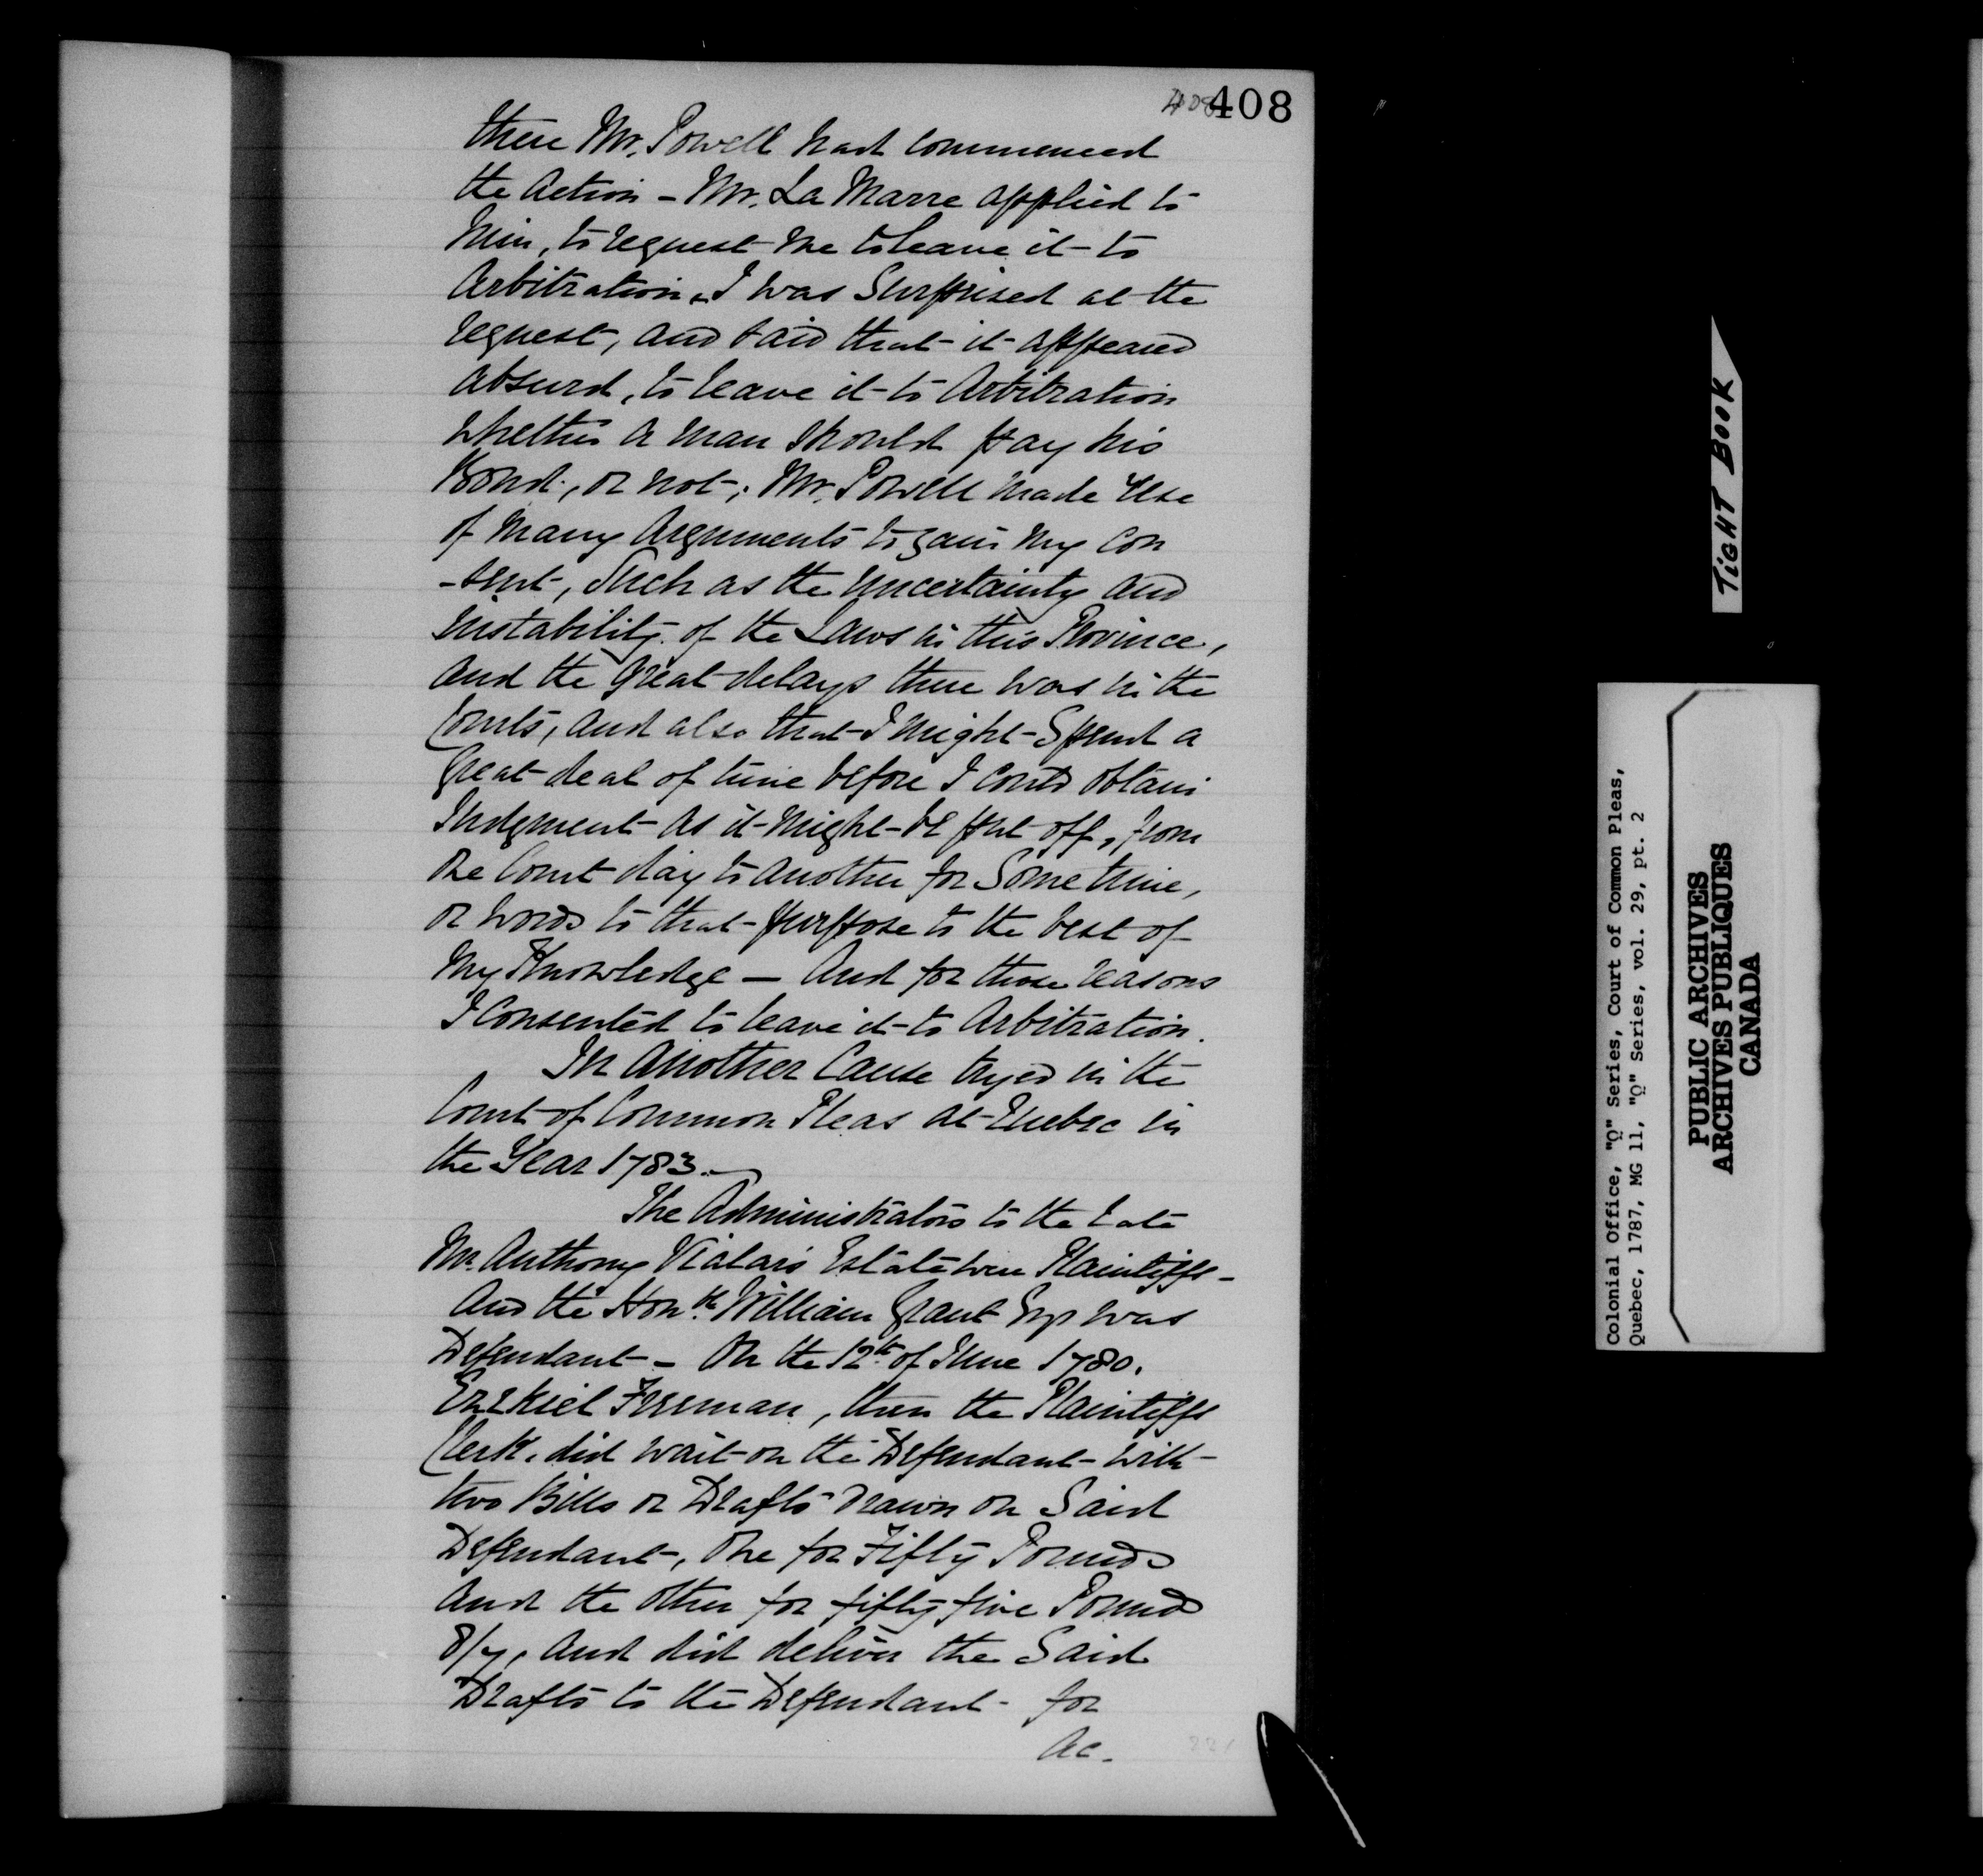 408
408
then Mr. Powell had Commenced
the Action – Mr. La Marre applied to
him, to request me to leave it to
Arbitration, I was Surprised at the
request, and said that it appeared
absurd, to leave it to Arbitration
whether a man should pay his
Bond, or not; Mr. Powell made Use
of many Arguments to gain my Con
-sent, Such as the uncertainty and
instability of the Laws in this Province,
and the great delays there was in the
Courts, and also that I might Spend a
great deal of time before I could obtain
Judgment as it might be put off, from
one Court day to another for Some time,
or words to that purpose to the best of
my Knowledge — And for those reasons
I Consented to leave it to Arbitration.
In Another Cause tryed in the
Court of Common Pleas at Quebec in
the Year 1783.—
The Administrators to the Late
Mr. Anthony Vialars Estate were Plaintiffs –
And the Honble William Grant Esqr was
Defendant – On the 12th of June 1780.
Ezekiel Freeman, then the Plaintiffs
Clerk, did wait on the Defendant with
two Bills or Drafts drawn on Said
Defendant, One for Fifty Pounds
and the other for fifty five Pounds
8/7, and did deliver the Said
Drafts to the Defendant for
Ac-
TIGHT BOOK
Colonial Office, "Q" Series, Court of Common Pleas,
Quebec, 1787, MG 11, "Q" Series, vol. 29, pt. 2
PUBLIC ARCHIVES
ARCHIVES PUBLIQUES
CANADA